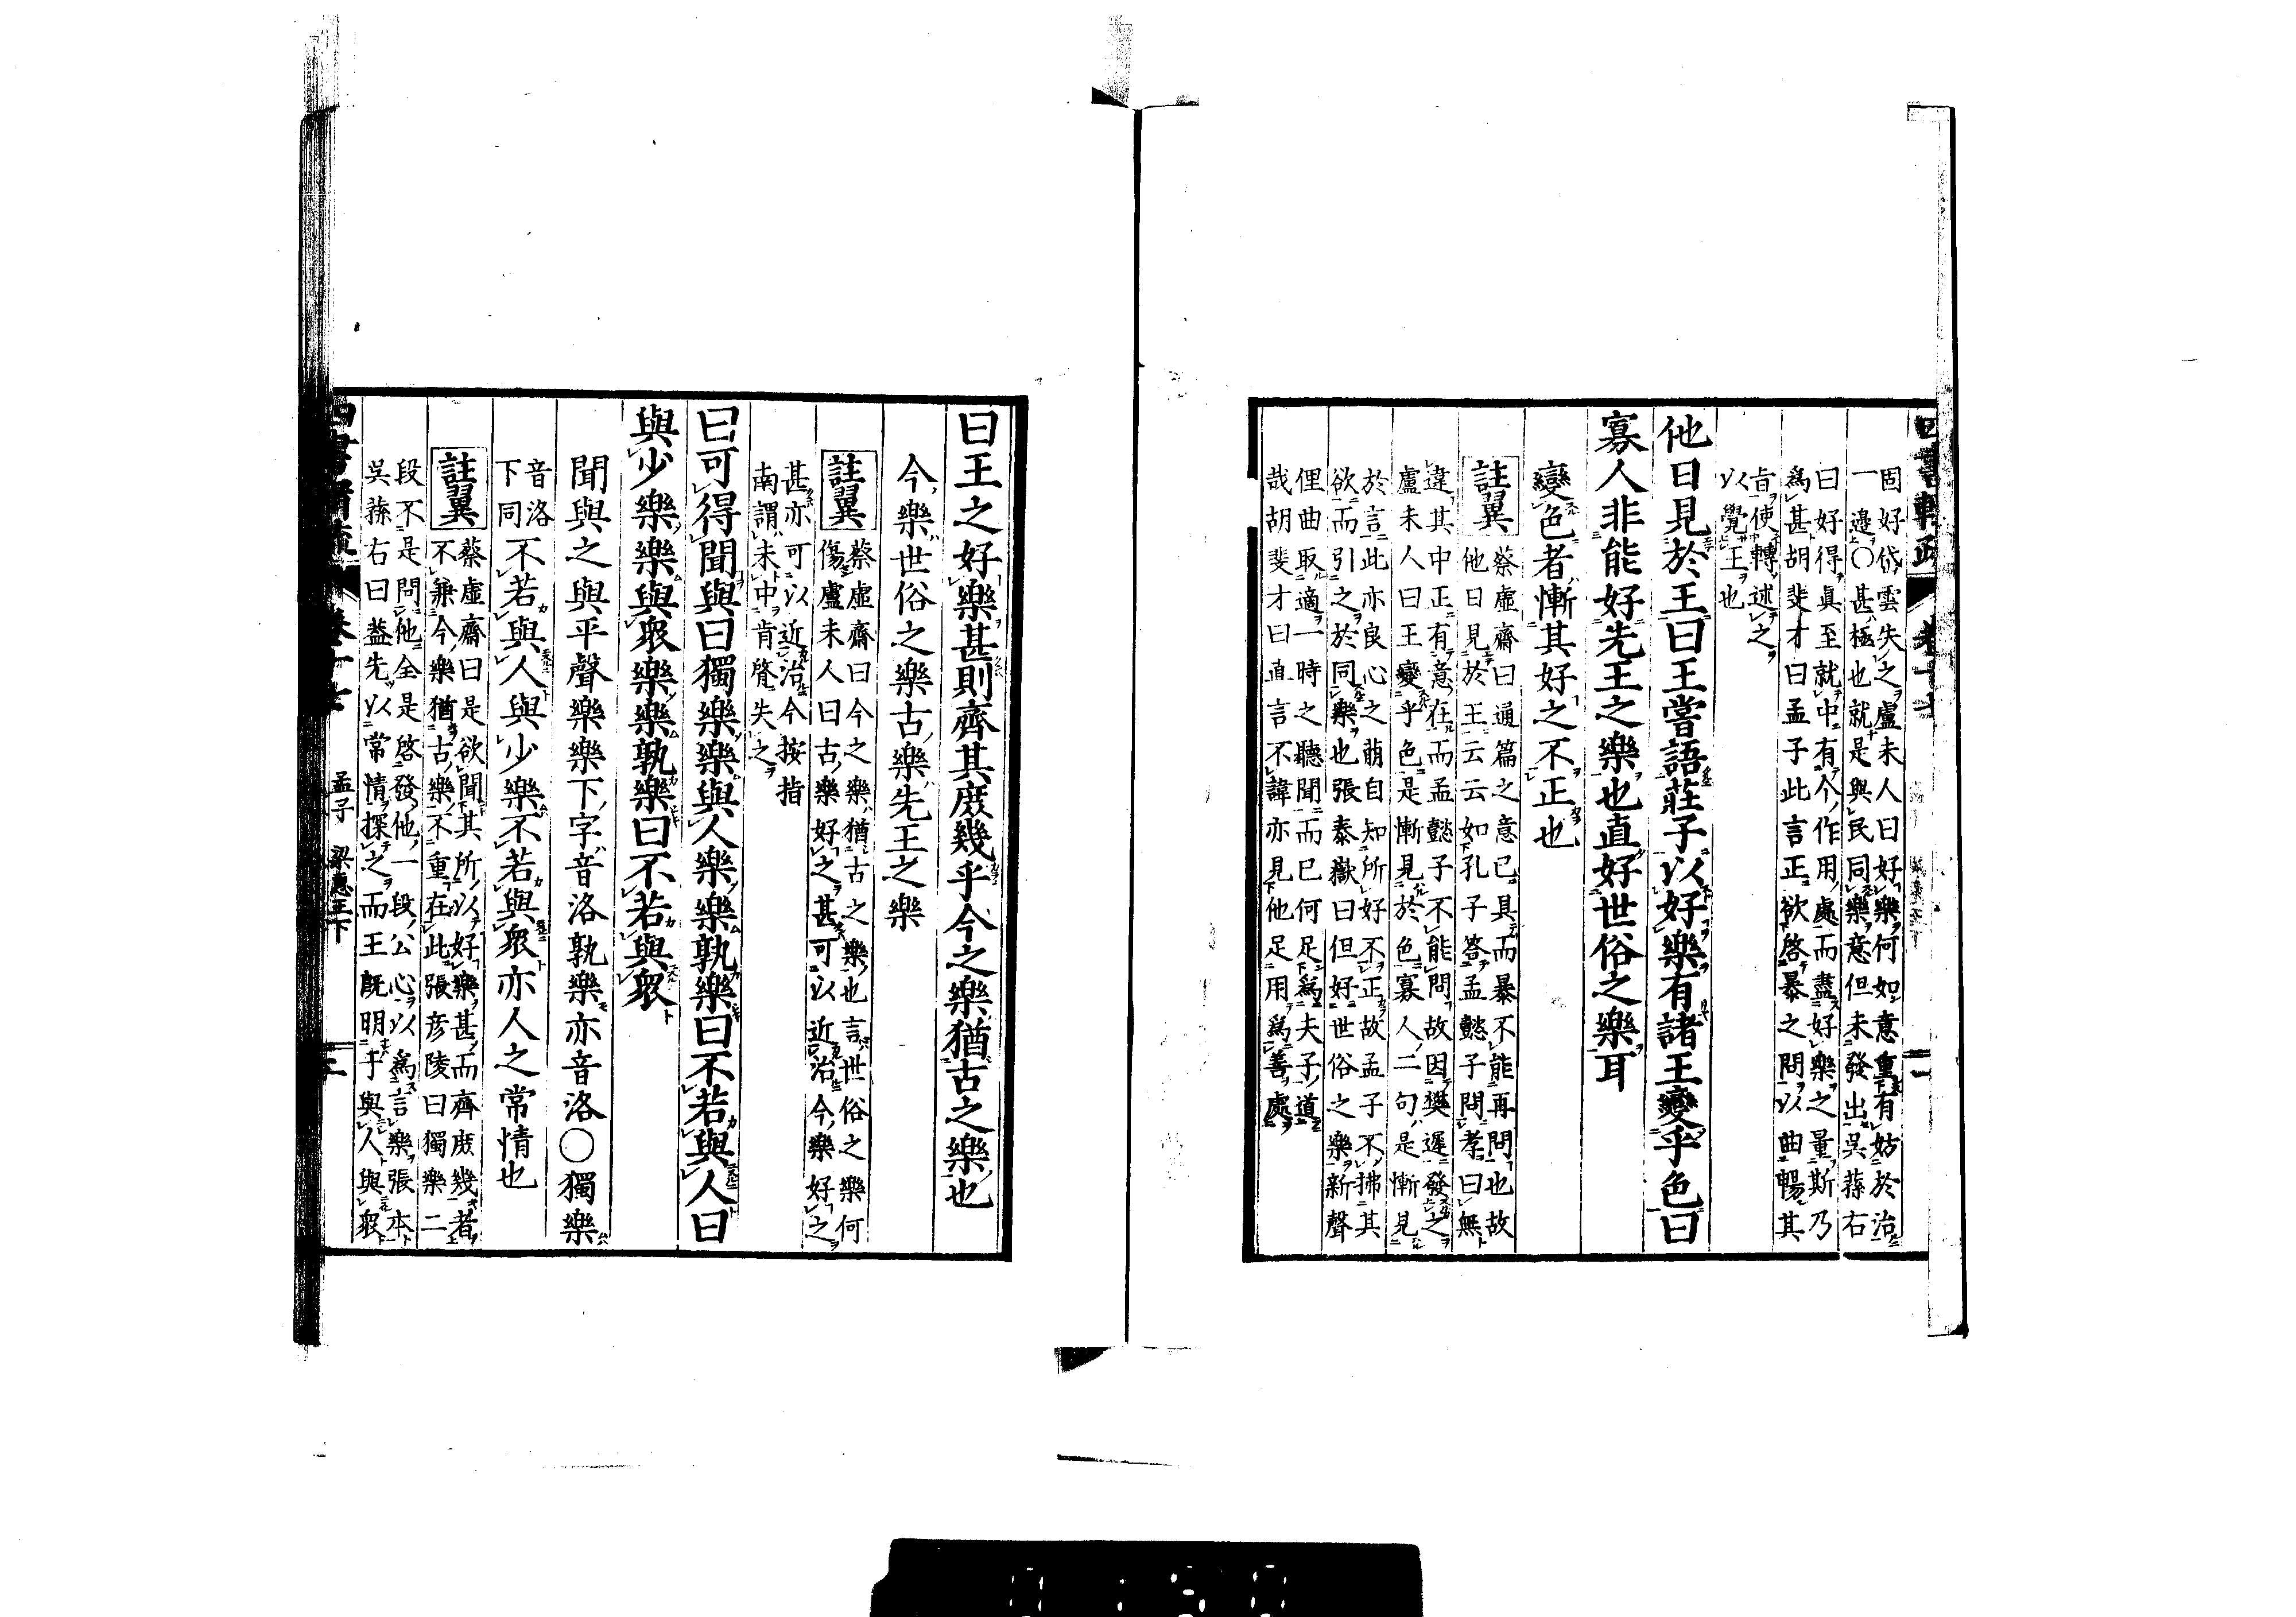 固好岱雲失之盧未人曰好樂何如意重有妨於治
一邉〇甚極也就是與民同樂意但未發出吳蓀右
曰好得眞至就中有今作用處而盡好樂之量斯乃
爲甚胡斐才曰孟子此言正欲啓暴之問以曲暢其
㫖使轉述之
以覺王也
他日見於王曰王嘗語莊子以好樂有諸王變乎色曰
寡人非能好先王之樂也直好世俗之樂耳
變色者慚其好之不正也
註翼
蔡虛齋曰通篇之意已具而暴不能再問也故
他日見於王云云如孔子答孟懿子問孝曰無
違其中正有意在而孟懿子不能問故因樊遲發之
盧未人曰王變乎色是慚見於色寡人二句是慚見
於言此亦良心之萌自知所好不正故孟子不拂其
欲而引之於同樂也張泰嶽曰但好世俗之樂新聲
俚曲取適一時之聽聞而已何足爲夫子道
哉胡斐才曰直言不諱亦見他足用爲善處
曰王之好樂甚則齊其庻幾乎今之樂猶古之樂也
今樂世俗之樂古樂先王之樂
註翼
蔡虛齋曰今之樂猶古之樂也言世俗之樂何
傷盧未人曰古樂好之甚可以近治今樂好之
甚亦可以近治今按指
南謂未中肯綮失之
曰可得聞與曰獨樂樂與人樂樂孰樂曰不若與人曰
與少樂樂與衆樂樂孰樂曰不若與衆
聞與之與平聲樂樂下字音洛孰樂亦音洛〇獨樂
音洛
下同
不若與人與少樂不若與衆亦人之常情也
註翼
蔡虛齋曰是欲聞其所以好樂甚而齊庻幾者
不兼今樂猶古樂不重在此張彦陵曰獨樂二
段不是問他全是啓發他一段公心以爲言樂張本
吳蓀右曰葢先以常情探之而王旣明于與人與衆
孟子 梁惠王下